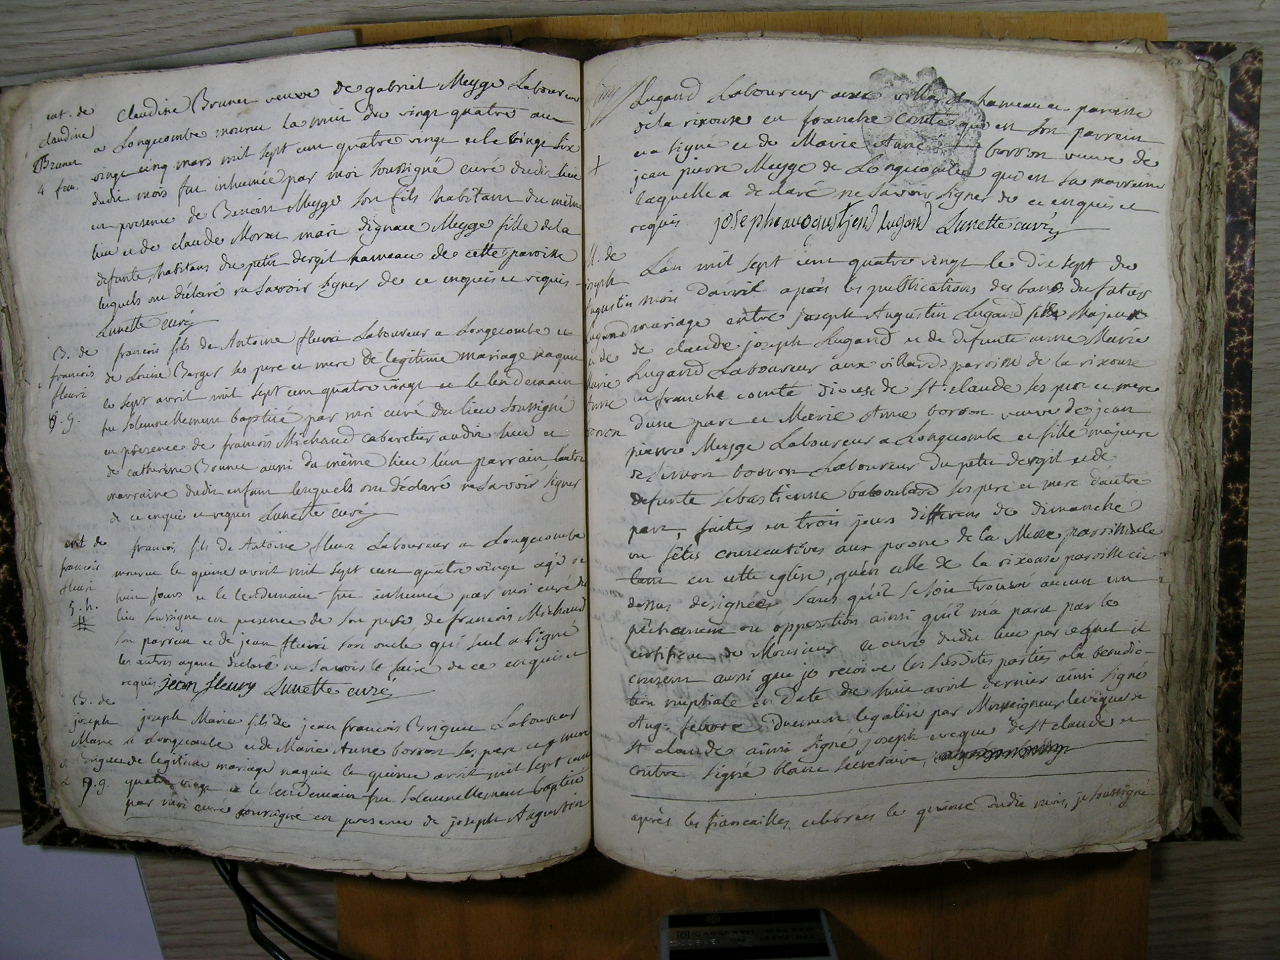 ent. de
claudine
Brunet
4 fem.
claudine Brunet veuve de gabriel Meyge Laboureur
a Longecombe mourut la nuit du vingt quatre au
vingt cinq mars mil sept cent quatre vingt et le vingt six
dudit mois fut inhumée par moi soussigné curé dudit lieu
en presence de Benoit Meyge son fils habitant du même
lieu et de claude Moras mari dignace Meyge fille de la
defunte, habitans du petit dergit hameau de cette paroisse
lesquels ont déclaré ne savoir signer de ce enquis et requis
Lunette curé
B. de
françois
fleuri
8. g.
françois fils de Antoine fleuri Laboureur a Longecombe et
de Louise Berger ses pere et mere de legitime mariage naquit
le sept avril mil sept cent quatre vingt et le lendemain
fut solemnellement baptisé par moi curé du lieu soussigné
en presence de françois Michaud cabaretier audit lieu et
de catherine Brunet aussi du même lieu l'un parrain l'autre
marraine dudit enfant lesquels ont déclaré ne savoir signer
de ce enquis et requis Lunette curé
ent. de
françois
fleuri
5. h.
françois fils de Antoine fleuri Laboureur a Longecombe
mourut le quinze avril mil sept cent quatre vingt agé de
huit jours et le lendemain fut inhumé par moi curé du
lieu soussigné en presence de son pere de françois Michaud
son parrein et de jean fleuri son oncle qui seul a signé
les autres ayant declaré ne savoir le faire de ce enquis et
requis jean fleury Lunette curé
B. de
joseph
Marie
Briguet
9. g.
joseph Marie fils de jean françois Briguet Laboureur
a Longecombe et de Marie Anne borron ses pere et mere
de legitime mariage naquit le quinze avril mil sept cent
quatre vingt et le lendemain fut solemnellement baptisé
par moi curé soussigné en presence de joseph Augustin
Lugand Laboureur aux villards hameau et paroisse
de la rixouse en franche comté qui est son parrein
et a ligne et de Marie Anne borron veuve de
jean pierre Meyge de Longecombe qui est sa marraine
laquelle a declaré ne savoir signer de ce enquis et
requis. joseph augustien lugand Lunette curé
M. de
joseph
augustin
lugand
et de
Marie
Anne
borron
L'an mil sept cent quatre vingt le dix sept du
mois d'avril après les publications des bans du futur
mariage entre joseph Augustin Lugand fils Majeur
de claude joseph Lugand et de defunte anne Marie
Lugand Laboureur aux villards paroisse de la rixouse
en franche comté diocese de St. claude ses pere et mere
d'une part et Marie Anne borron veuve de jean
pierre Meyge Laboureur a Longecombe et fille majeure
de borron Laboureur du petit dergit et de
defunte sebastienne ses pere et mere d'autre
part, faites en trois jours differens de dimanche
ou fêtes consecutives aux prone de la Messe paroissiale
tant en cette eglise, qu'en celle de la rixouse paroisse ci
dessus designée sans qu'il se soit trouvé aucun em
pêchement ou opposition ainsi qu'il m'a paru par le
certificat de Monsieur le curé dudit lieu par lequel il
consent aussi que je reçoive les susdites parties a la benedic-
tion nuptiale en date du huit avril dernier ainsi signé
Aug. duement legalisé par Monseigneur leveque de
St claude ainsi signé joseph eveque de St claude et
contre signé blanc secretaire
après les fiancailles celebrées le quinze dudit mois, je soussigné